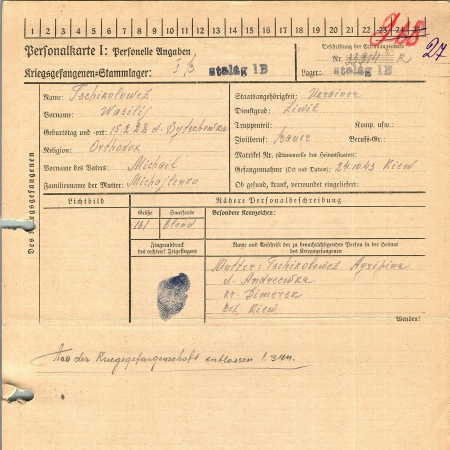 1 2 3 4 5 6 7 8 9 10 11 12 13 14 15 16 17 18 19 20 21 22 23 24 25
Personalkarte I: Personelle Angaben
Beschriftung der Erkennungsmarke
Nr. 32914 R
27
Kriegsgefangenen-Stammlager: I/B Stalag IB
Lager: Stalag IB
Des Kriegsgefangenen
Name: Tschikolowez
Vorname: Wasilij
Geburtstag und -ort: 15.2.28 d. Bytschowka
Religion: Orthodox
Vorname des Vaters: Michail
Familienname der Mutter: Michajlenko
Staatsangehörigkeit: Ukrainer
Dienstgrad: Zivil
Truppenteil: Komp. usw.:
Zivilberuf: Bauer Berufs-Gr.:
Matrikel Nr. (Stammrolle des Heimatstaates):
Gefangennahme (Ort und Datum): 24.10.43 Kiew
Ob gesund, krank, verwundet eingeliefert:
Lichtbild
Nähere Personalbeschreibung
Größe
Haarfarbe
Besondere Kennzeichen:
161 blond
Fingerabdruck
des rechten! Zeigefingers
Name und Anschrift der zu benachrichtigenden Person in der Heimat
des Kriegsgefangenen
Mutter: Tschikolowez Agripina
d. Andreewka
Kr. Dimersk
Bez. Kiew
Wenden!
Aus der Kriegsgefangenschaft entlassen